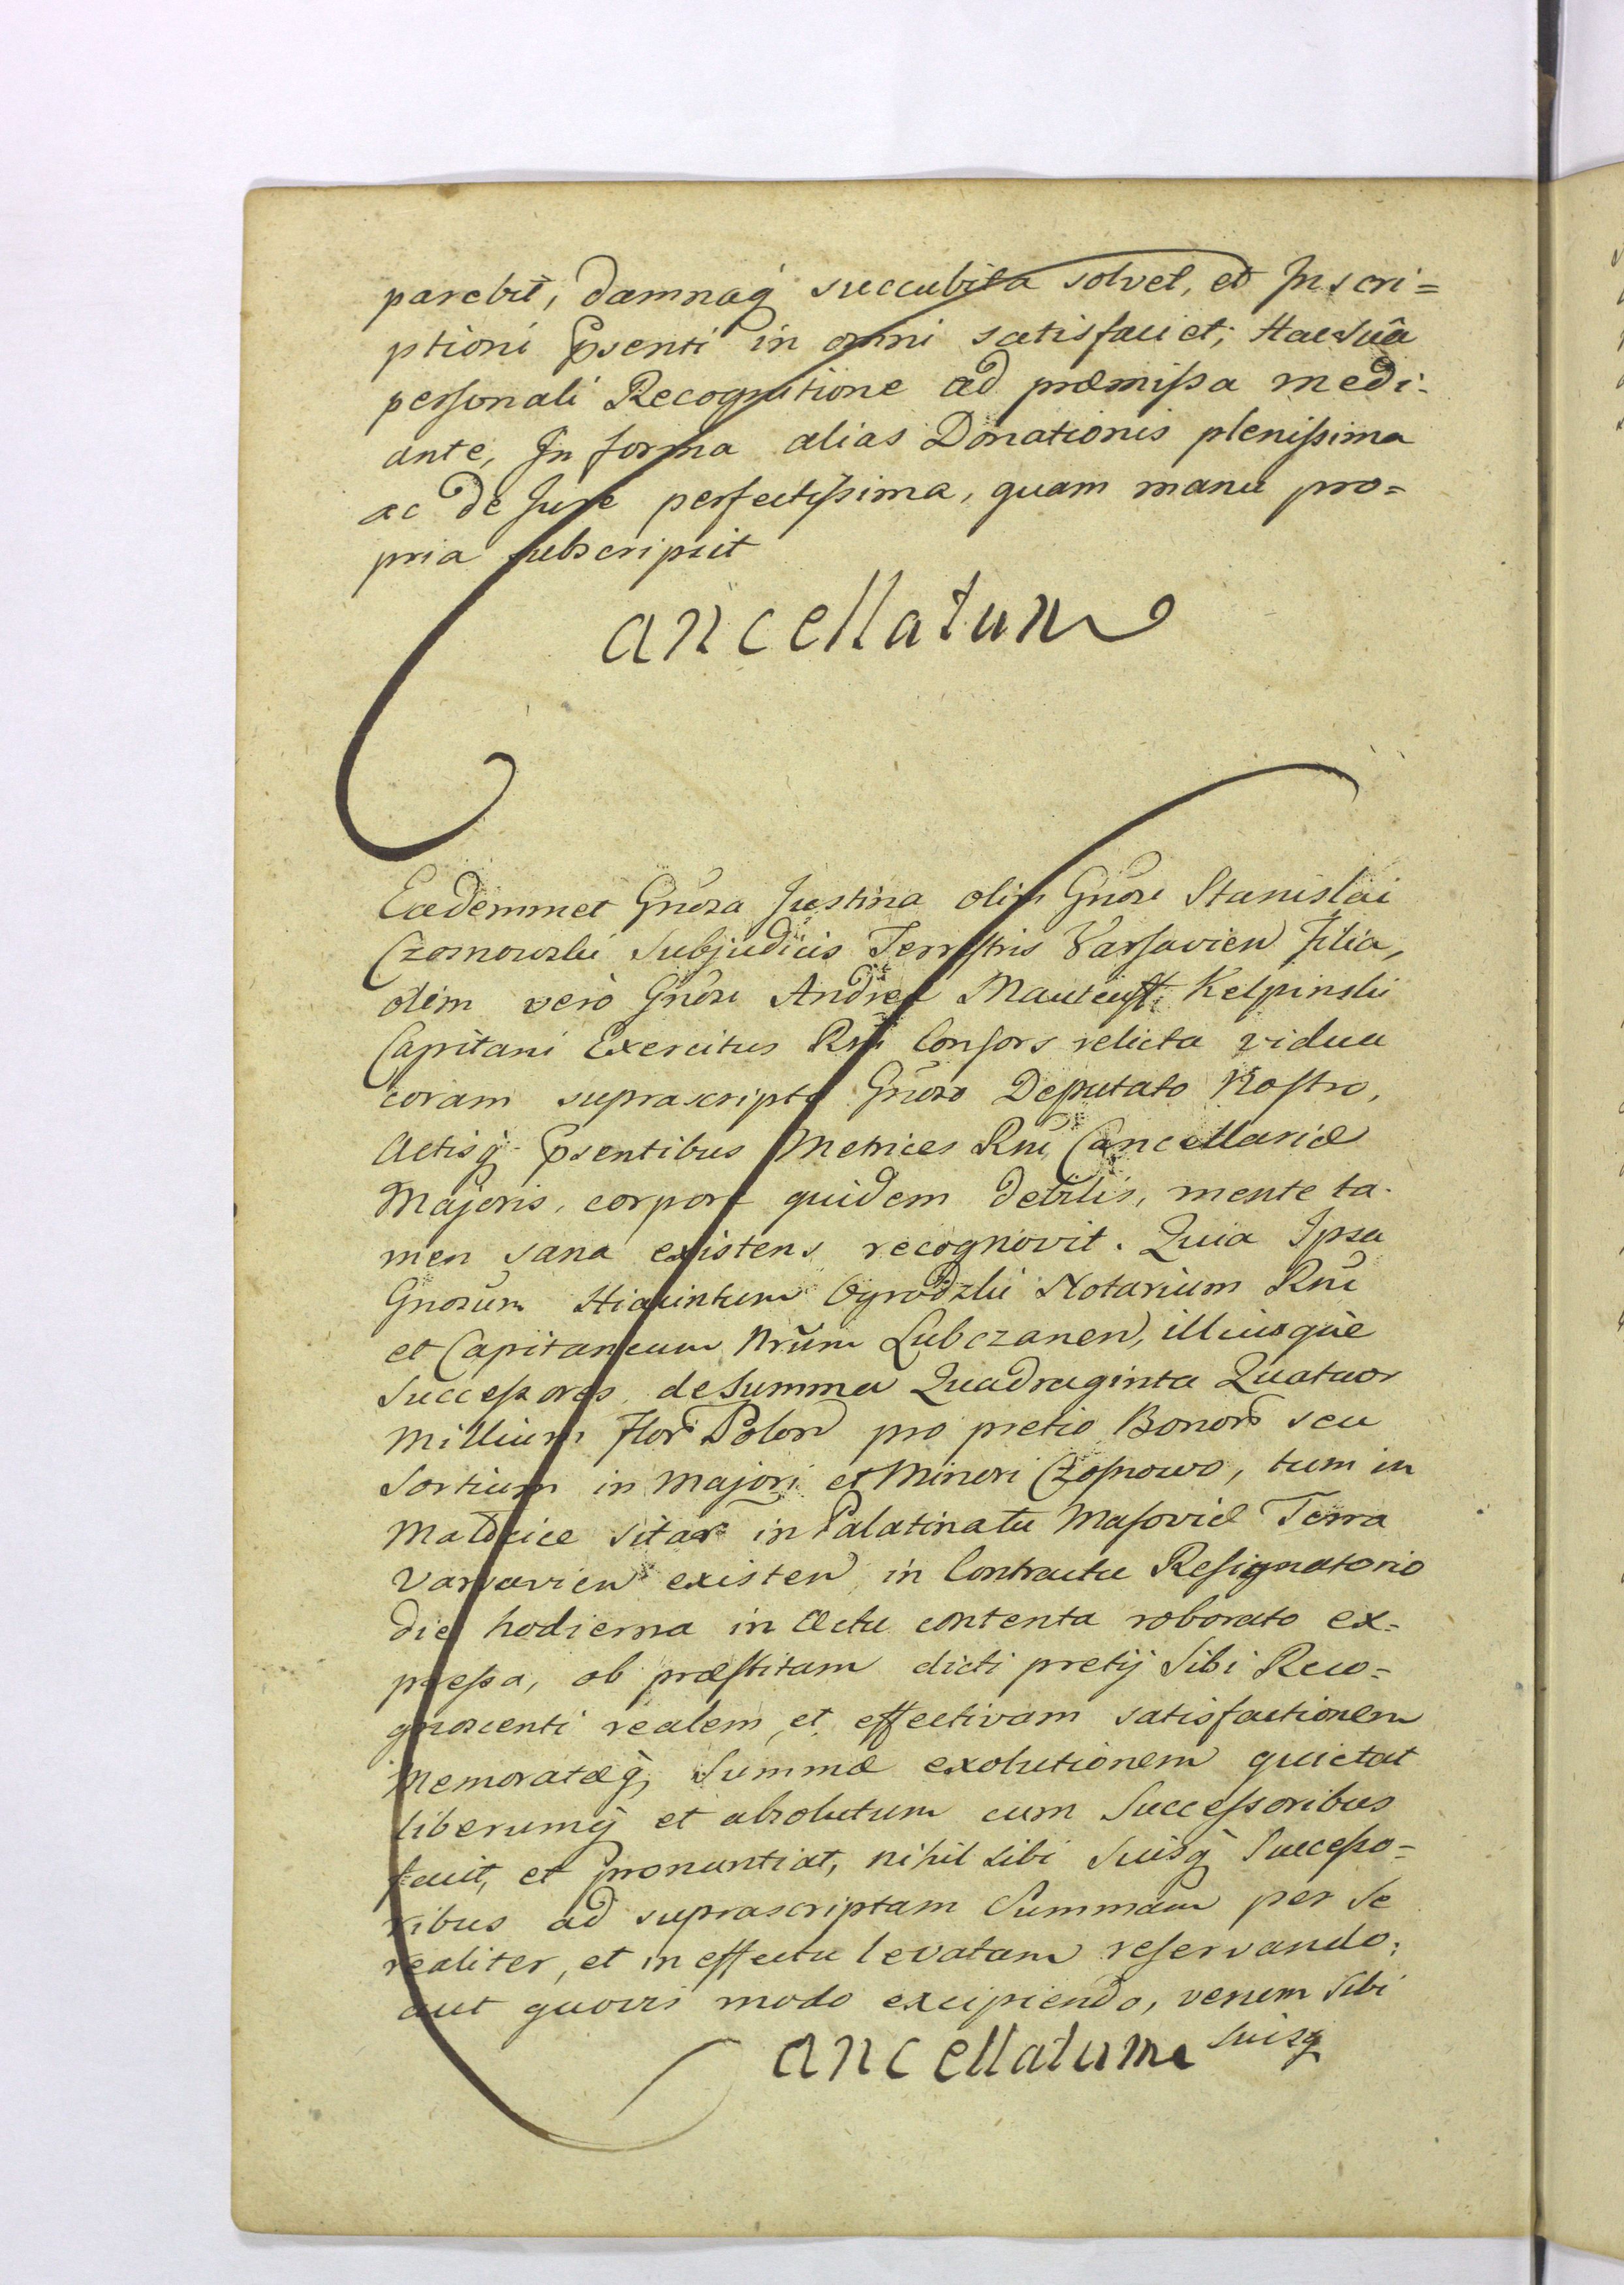 parebit, damnaq́ succubita solvet, et Inscri=
ptioni Pp̃senti in omni satisfaciet; Hac suâ
personali Recognitione ad præmissa medi-
ante, In forma alias Donationis plenissima
ac de Jure perfectissima, quam manu pro=
pria subscripsit
Cancellatum
Eademmet Gnõsa Justina olim Gnõsi Stanislai
Czosnowski Subjudicis Terrestris Varsavien Filia,
olim verò Gnõsi Andreæ Kelpinski
Capitani Exercitus Rni Consors relicta vidua
coram suprascripto Gnõso Deputato Nostro,
Actisq́ Pp̃sentibus Metrices Rni Cancellariæ
Majoris, corpore quidem debilis, mente ta-
men sana existens recognovit. Quia Ipsa
Gnosũm Hiacintum Ogrodzki Notarium Rni
et Capitaneum Nrũm Lubczanen, illiusquè
Successores de Summa Quadraginta Quatuor
Millium Flor Polon pro pretio Bonor seu
Sortium in Majori et Minori Czosnowo, tum in
sitar in Palatinatu Masoviæ Terra
Varsavien existen in Contractu Resignatorio
die hodierna in Actu contenta roborato ex=
pressa, ob præstitam dicti pretij Sibi Reco=
gnoscenti realem et effectivam satisfactionem
Memoratæq́ Summæ exolutionem quietat
liberumq́ et absolutum cum Successoribus
facit, et pronuntiat, nihil sibi Suisq́ Successo=
ribus ad suprascriptam Summam per Se
realiter, et in effectu levatam reservando,
aut quovis modo excipiendo, verum Sibi
Suisq́
Cancellatum